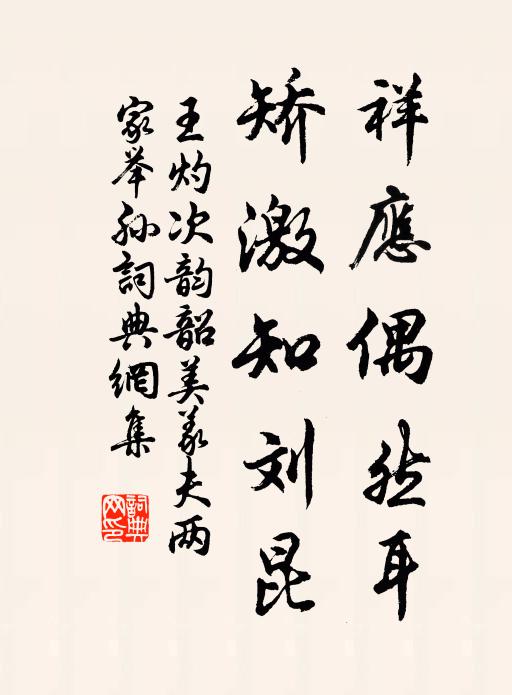 祥應偶然耳
矫激知刘昆
王灼次韵韶美美夫两
家举孙詞典網集
詞典网印